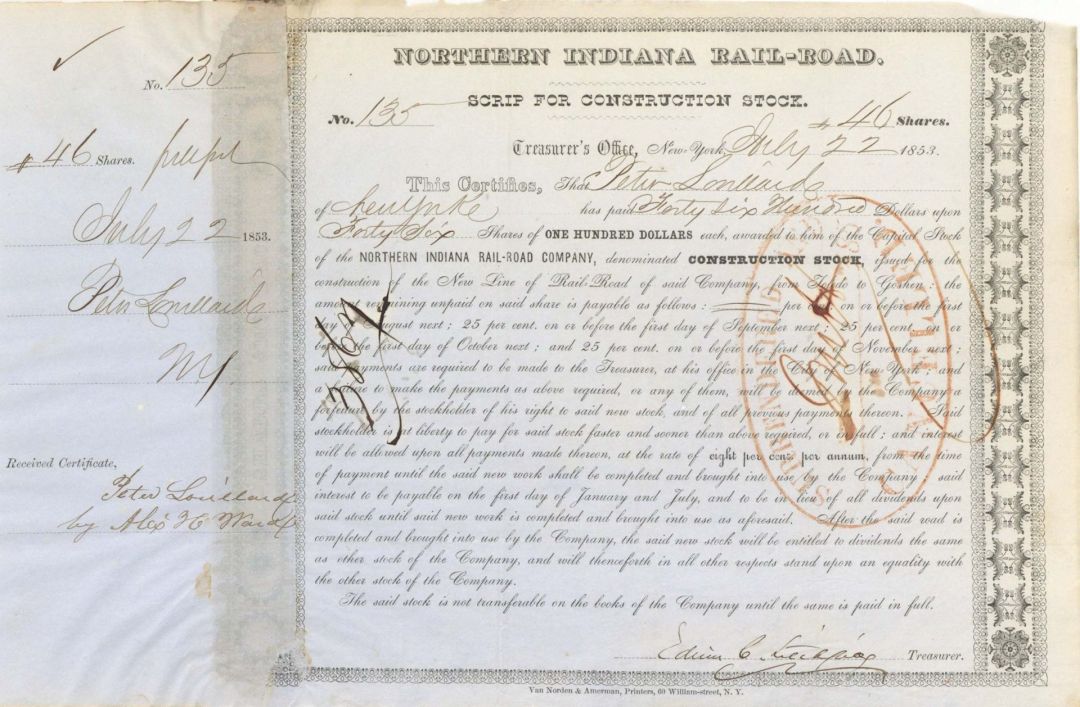 No. 135
# 46 Shares.
July 22 1853.
Peter Lorillard
NY
Received Certificate,
Peter Lorillard
by Alex H Ward
NORTHERN INDIANA RAIL-ROAD.
SCRIP FOR CONSTRUCTION STOCK.
No. 135 # 46 Shares.
Treasurer's Office, New-York, July 22 1853.
This Certifies, That Peter Lorillard
of New York has paid Forty six Hundred Dollars upon
Forty Six Shares of ONE HUNDRED DOLLARS each, awarded to him of the Capital Stock
of the NORTHERN INDIANA RAIL-ROAD COMPANY, denominated CONSTRUCTION STOCK, issued for the
construction of the New Line of Rail-Road of said Company, from Toledo to Goshen: the
amount remaining unpaid on said share is payable as follows: per cent. on or before the first
day of August next; 25 per cent. on or before the first day of September next; 25 per cent. on or
before the first day of October next; and 25 per cent. on or before the first day of November next;
said payments are required to be made to the Treasurer, at his office in the City of New York: and
a failure to make the payments as above required, or any of them, will be deemed by the Company a
forfeiture by the stockholder of his right to said new stock, and of all previous payments thereon. Said
stockholder is at liberty to pay for said stock faster and sooner than above required, or in full; and interest
will be allowed upon all payments made thereon, at the rate of eight per cent. per annum, from the time
of payment until the said new work shall be completed and brought into use by the Company: said
interest to be payable on the first day of January and July, and to be in lieu of all dividends upon
said stock until said new work is completed and brought into use as aforesaid. After the said road is
completed and brought into use by the Company, the said new stock will be entitled to dividends the same
as other stock of the Company, and will thenceforth in all other respects stand upon an equality with
the other stock of the Company.
The said stock is not transferable on the books of the Company until the same is paid in full.
Edwin C. Litchfield Treasurer.
Van Norden & Amerman, Printers, 60 William-street, N. Y.